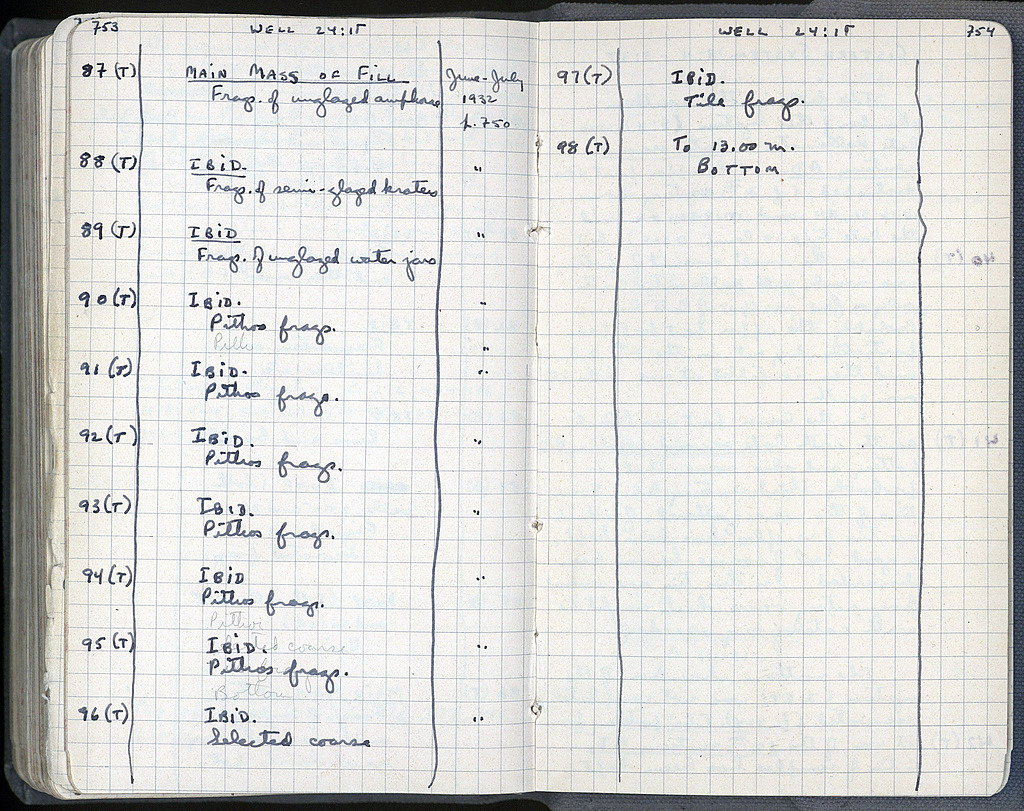 753
WELL 24:15
87 (T) MAIN MASS OF FILL June-July
Frags. of unglazed amphorae 1932
p. 750
88 (T) IBID. "
Frags. of semi-glazed kraters
89 (T) IBID "
Frags. of unglazed water jars
90 (T) IBID. "
Pithos frags.
"
91 (T) IBID. "
Pithos frags.
92 (T) IBID. "
Pithos frags.
93 (T) IBID. "
Pithos frags.
94 (T) IBID "
Pithos frags.
Pithoi
95 (T) IBID. "
coarse
Pithos frags.
Bottom
96 (T) IBID. "
Selected coarse
WELL 24:15
754
97 (T) IBID.
Tile frags.
98 (T) To 13.00 m.
BOTTOM